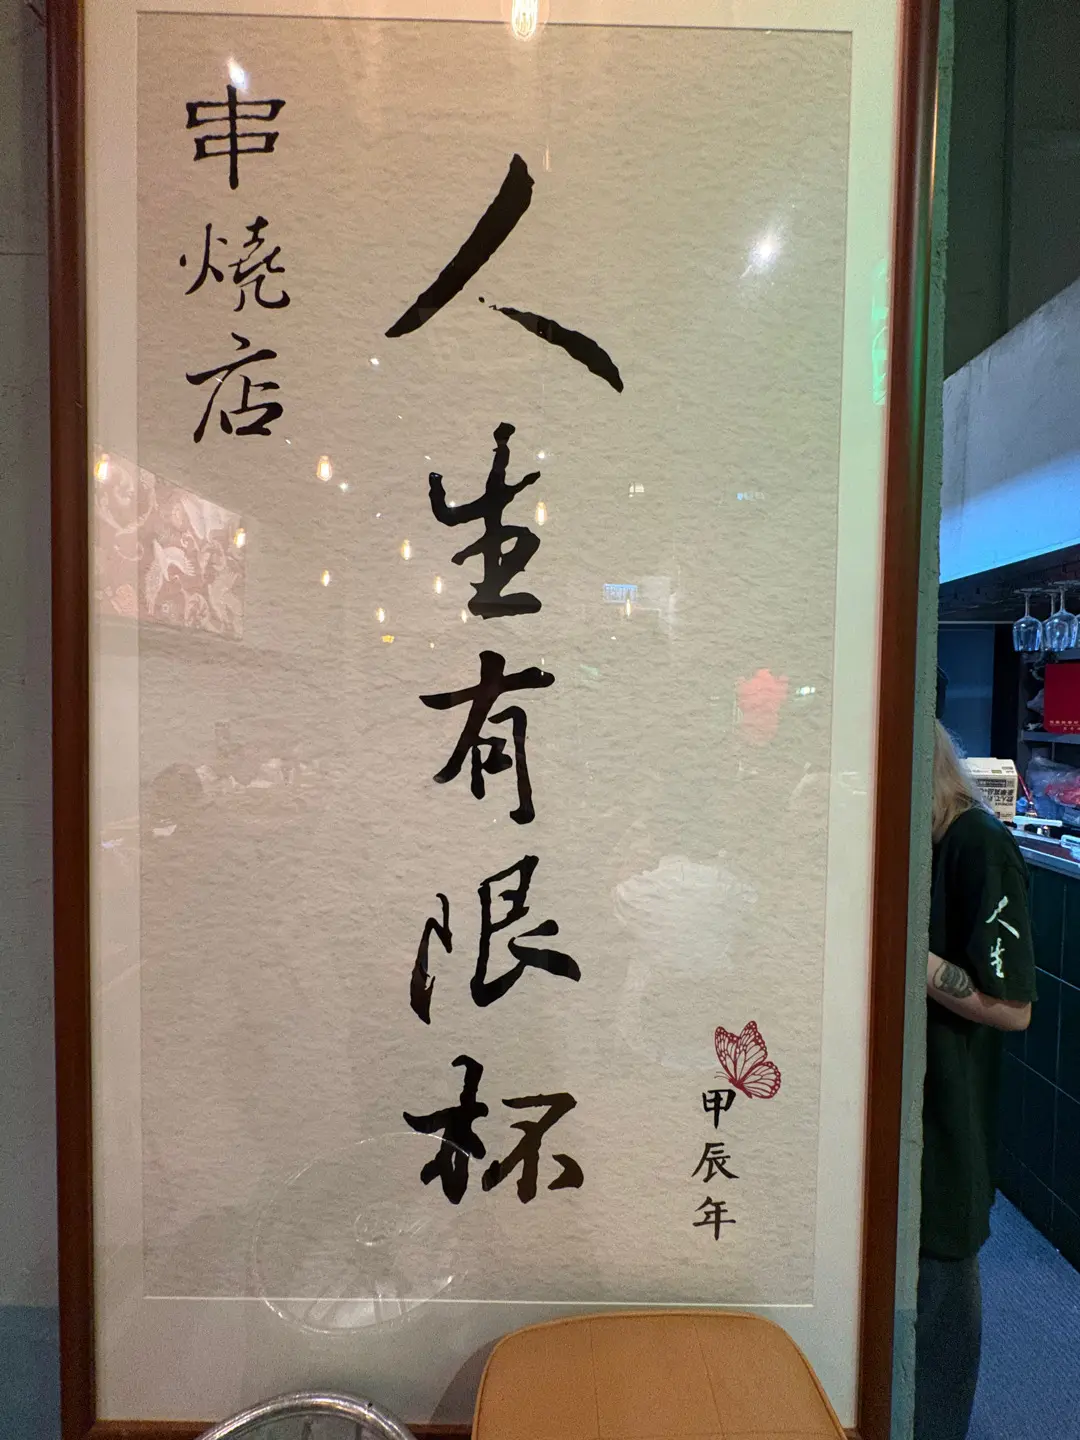 人生有限杯
串燒店
甲辰年
人生